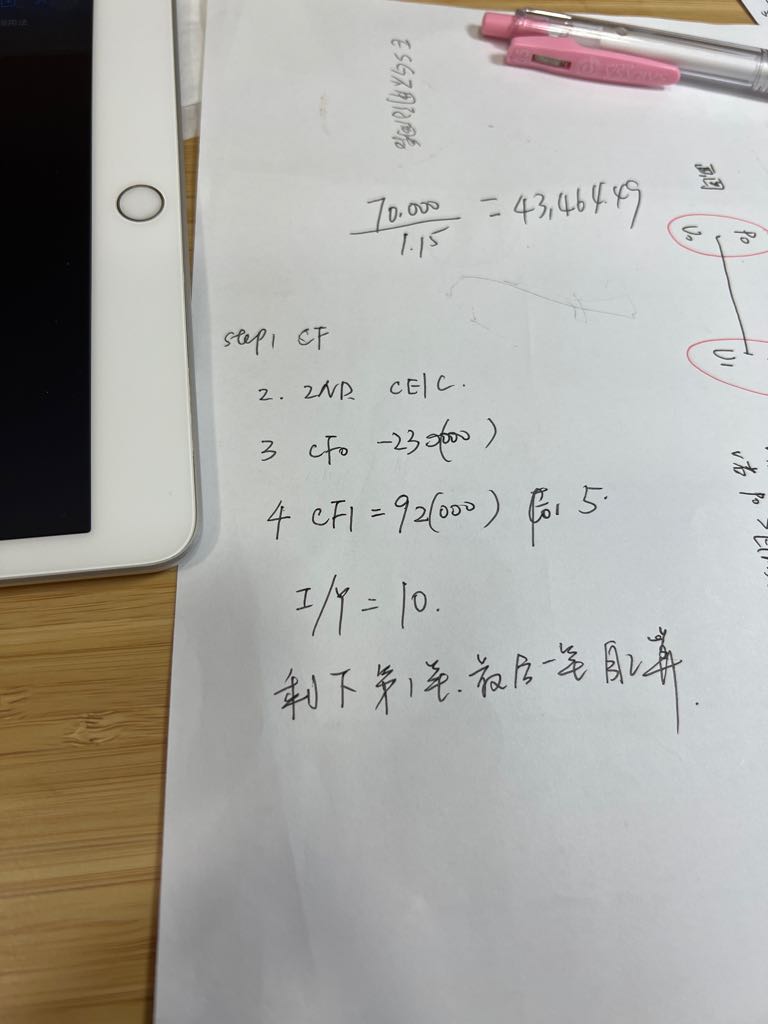 70.000
1.15
= 43,464.49
step1 CF
2. 2ND CE|C.
3 CF0 -230(000)
4 CF1 = 92(000) F01 5.
I/Y = 10.
剩下第1笔.最后一笔自己算.
U0 P0
U1